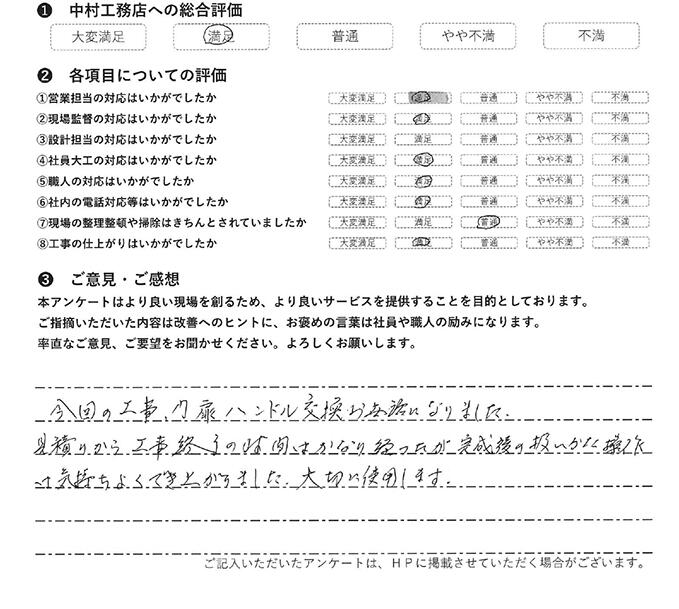 ❶ 中村工務店への総合評価
大変満足 満足 普通 やや不満 不満
❷ 各項目についての評価
①営業担当の対応はいかがでしたか 大変満足 満足 普通 やや不満 不満
②現場監督の対応はいかがでしたか 大変満足 満足 普通 やや不満 不満
③設計担当の対応はいかがでしたか 大変満足 満足 普通 やや不満 不満
④社員大工の対応はいかがでしたか 大変満足 満足 普通 やや不満 不満
⑤職人の対応はいかがでしたか 大変満足 満足 普通 やや不満 不満
⑥社内の電話対応等はいかがでしたか 大変満足 満足 普通 やや不満 不満
⑦現場の整理整頓や掃除はきちんとされていましたか 大変満足 満足 普通 やや不満 不満
⑧工事の仕上がりはいかがでしたか 大変満足 満足 普通 やや不満 不満
❸ ご意見・ご感想
本アンケートはより良い現場を創るため、より良いサービスを提供することを目的としております。
ご指摘いただいた内容は改善へのヒントに、お褒めの言葉は社員や職人の励みになります。
率直なご意見、ご要望をお聞かせください。よろしくお願いします。
今回の工事、門扉ハンドル交換お世話になりました。
見積りから工事終了の時間はかなり経ったが完成後の扱い
は気持ちよくでき上がりました。大切に使用します。
ご記入いただいたアンケートは、HPに掲載させていただく場合がございます。